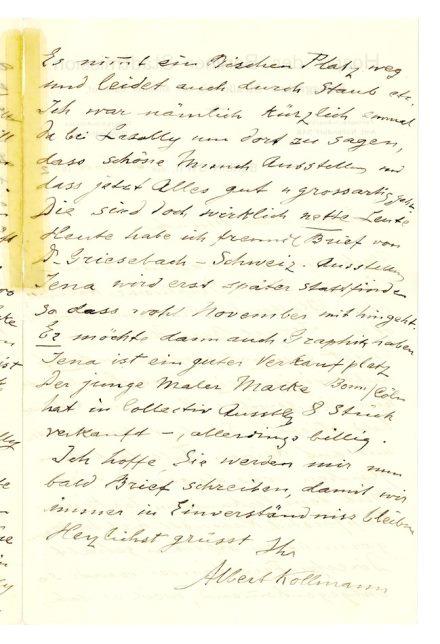 Es nimmt ein Bischen Platz weg
und leidet auch durch Staub etc.
Ich war nämlich kürzlich einmal
da bei Lassally um dort zu sagen,
dass schöne Munch Ausstellung und
dass jetzt Alles gut u grossartig gehe.
Die sind doch wirklich nette Leute
Heute habe ich freundl Brief von
Dr Griesebach – Schweiz. Ausstellung
Jena wird erst später stattfinden
so dass wohl November mit hingeht.
Er möchte dann auch Graphik haben
Jena ist ein guter Verkaufplatz
Der junge Maler Macke Bonn/Cöln
hat in Collectiv Ausstellg 8 Stück
verkauft –, allerdings billig.
Ich hoffe, Sie werden mir nun
bald Brief schreiben, damit wir
immer in Einverständniss bleiben
Herzlichst grüsst Ihr
Albert Kollmann